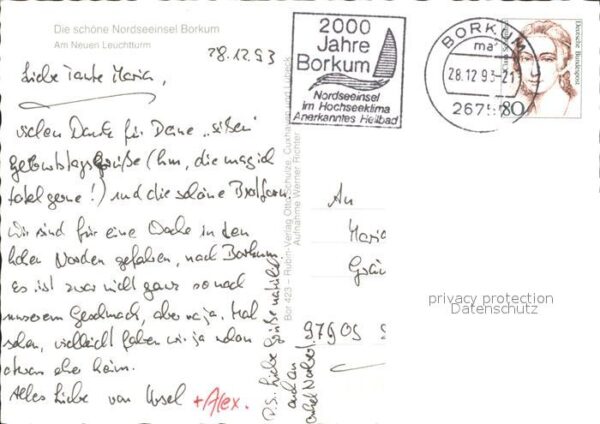 Die schöne Nordseeinsel Borkum
Am Neuen Leuchtturm
28.12.93
Liebe Tante Maria,
vielen Danke für Deine „süßen"
Geburtstagsgrüße (hm, die mag ich
total gerne!) und die schöne Brotform.
Wir sind für eine Woche in den
hohen Norden gefahren, nach Borkum,
es ist zwar nicht ganz so nach
unserem Geschmack, aber na ja. Mal
sehen, vielleicht fahren wir ja schon
etwas eher heim.
Alles Liebe von Ursel + Alex.
P.S. Liebe Grüße natürlich
auch an
Onkel
Bor 423 – Rubin-Verlag Otto Schulze, Cuxhaven und Lübeck
Aufnahme Werner Richter
2000
Jahre
Borkum
Nordseeinsel
im Hochseeklima
Anerkanntes Heilbad
BORKUM
ma
28.12.93-21
26757
80
Deutsche Bundespost
An
Maria
97909
privacy protection
Datenschutz